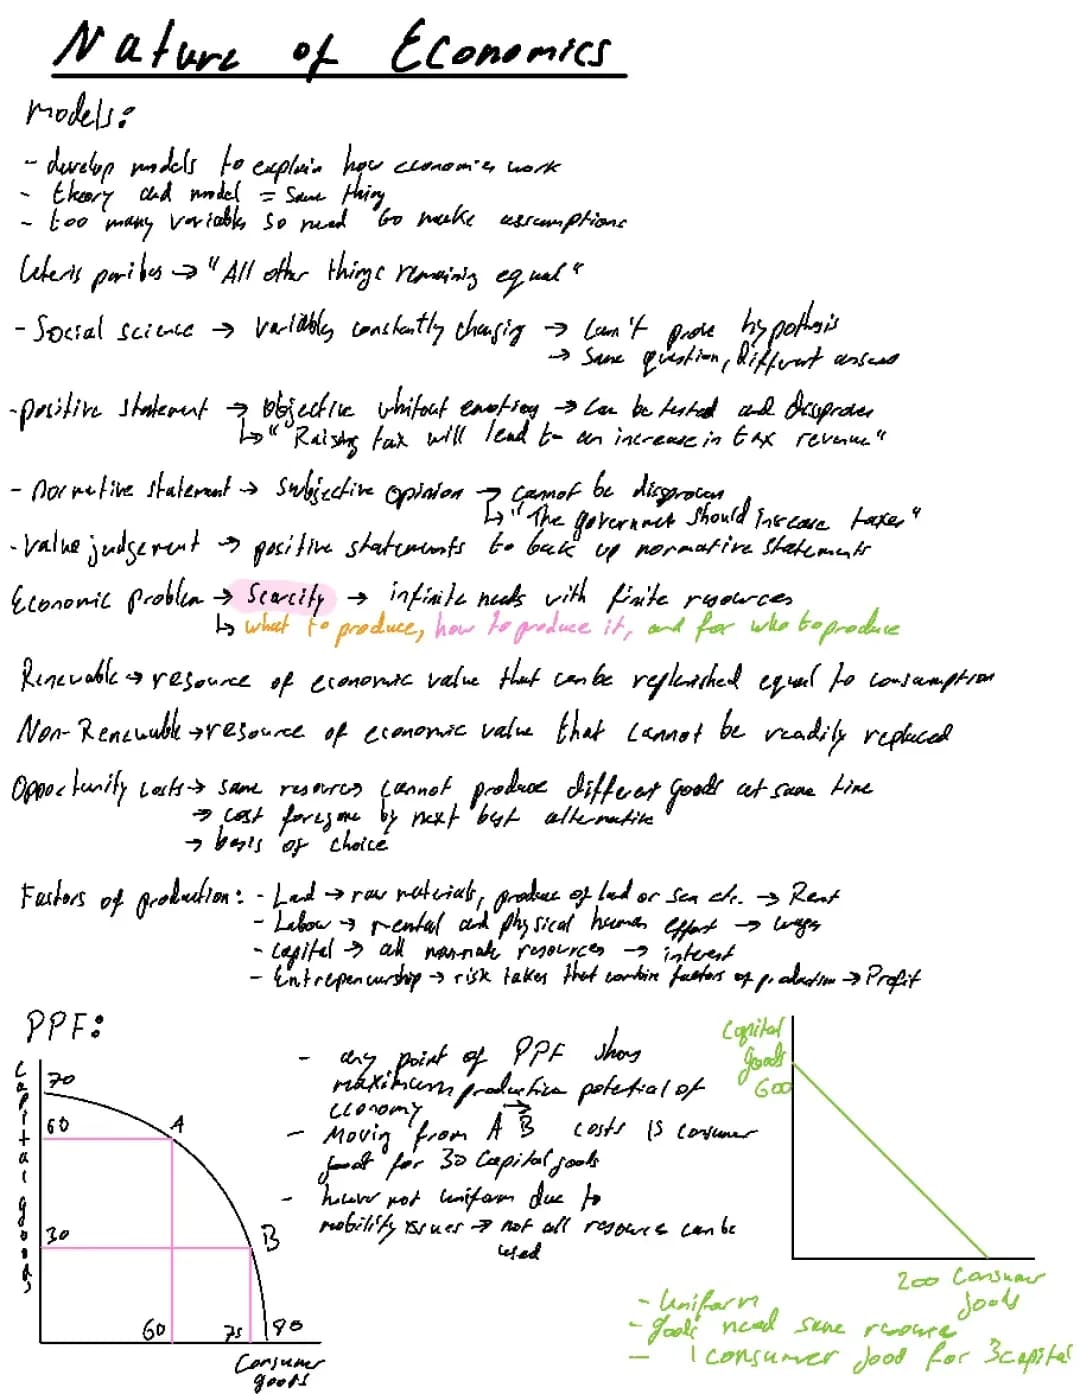 Nature of Economics
Models:
- develop models to explain how economies work
- theory and model = same thing
- too many variables so need to make assumptions
Ceteris paribus → "All other things remaining equal"
- Social science → variables constantly changing → can't prove hypothesis
→ same question, different
- positive statement → objective without emotion → can be tested and disproven
↳ "Raising tax will lead to an increase in tax revenue"
- normative statement → subjective opinion → cannot be disproven
↳ "The government should increase taxes"
- value judgement → positive statements to back up normative statements
Economic problem → Scarcity → infinite needs with finite resources
↳ what to produce, how to produce it, and for who to produce
Renewable → resource of economic value that can be replenished equal to consumption
Non-Renewable → resource of economic value that cannot be readily replaced
Opportunity costs → same resources cannot produce different goods at same time
→ cost foregone by next best alternative
→ basis of choice
Factors of production: - Land → raw materials, produce of land or sea etc. → Rent
- Labour → mental and physical human effort → wages
- Capital → all resources → interest
- Entrepeneurship → risk takes that combine factors of production → Profit
PPF:
- any point of PPF shows
maximum production potential of
economy
- Moving from A → B costs 15 consumer
good for 30 Capital goods
- however not uniform due to
mobility issues → not all resources can be
used
Capital goods
70
60
A
30
B
60
75
80
Consumer
goods
Capital
goods
600
200 Consumer
goods
- Uniform
- goods need same resource
- 1 consumer good for 3 capital